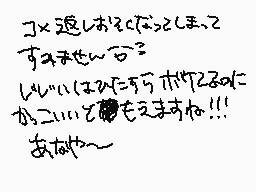 コメ返しおそくなってしまって
すみません
いじいはひたすらボケてるのに
かっこいいともえますね!!!
あなや〜